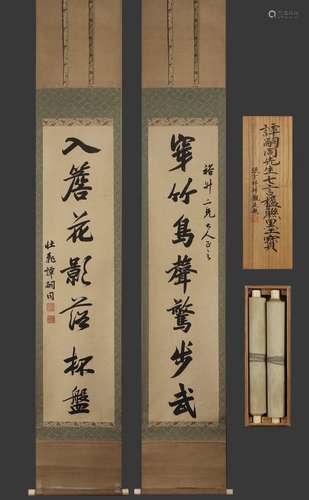 穿竹鳥聲驚步武
裕升二兄大人正之
入簷花影落杯盤
壯飛譚嗣同
譚嗣同先生七言楹聯墨寶